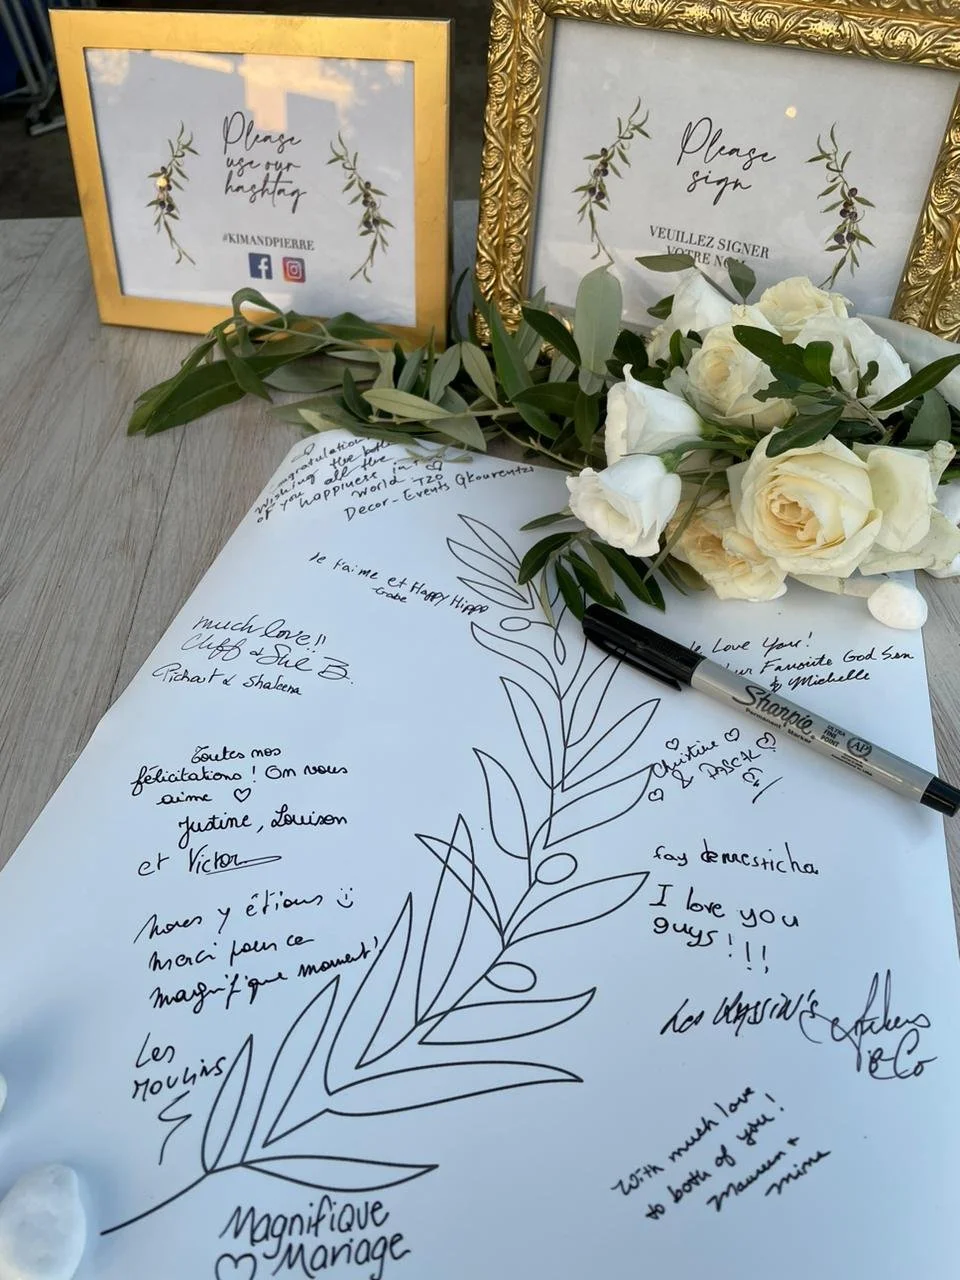 Please
use our
hashtag
#KIMANDPIERRE
Please
sign
VEUILLEZ SIGNER
VOTRE NOM
Congratulations
Wishing the both
of you all the
happiness in the
world T2O
Decor-Events Gkourentzi
Je t'aime et Happy Hippo
-Gabe
much love!!
Cliff & Sue B.
Richart & Shaleena
Love You!
Favorite God Son
& Michelle
Sharpie
Permanent Marker
ULTRA
FINE
POINT
AP
Christine
& PASCAL
Toutes nos
félicitations! On vous
aime ♡
Justine, Louison
et Victor
fay demesticha
I love you
guys!!!
Nous y étions :)
merci pour ce
magnifique moment!
Les
MOULINS
Les
& Co
With much love
to both of you!
Maureen +
mime
Magnifique
♡ Mariage